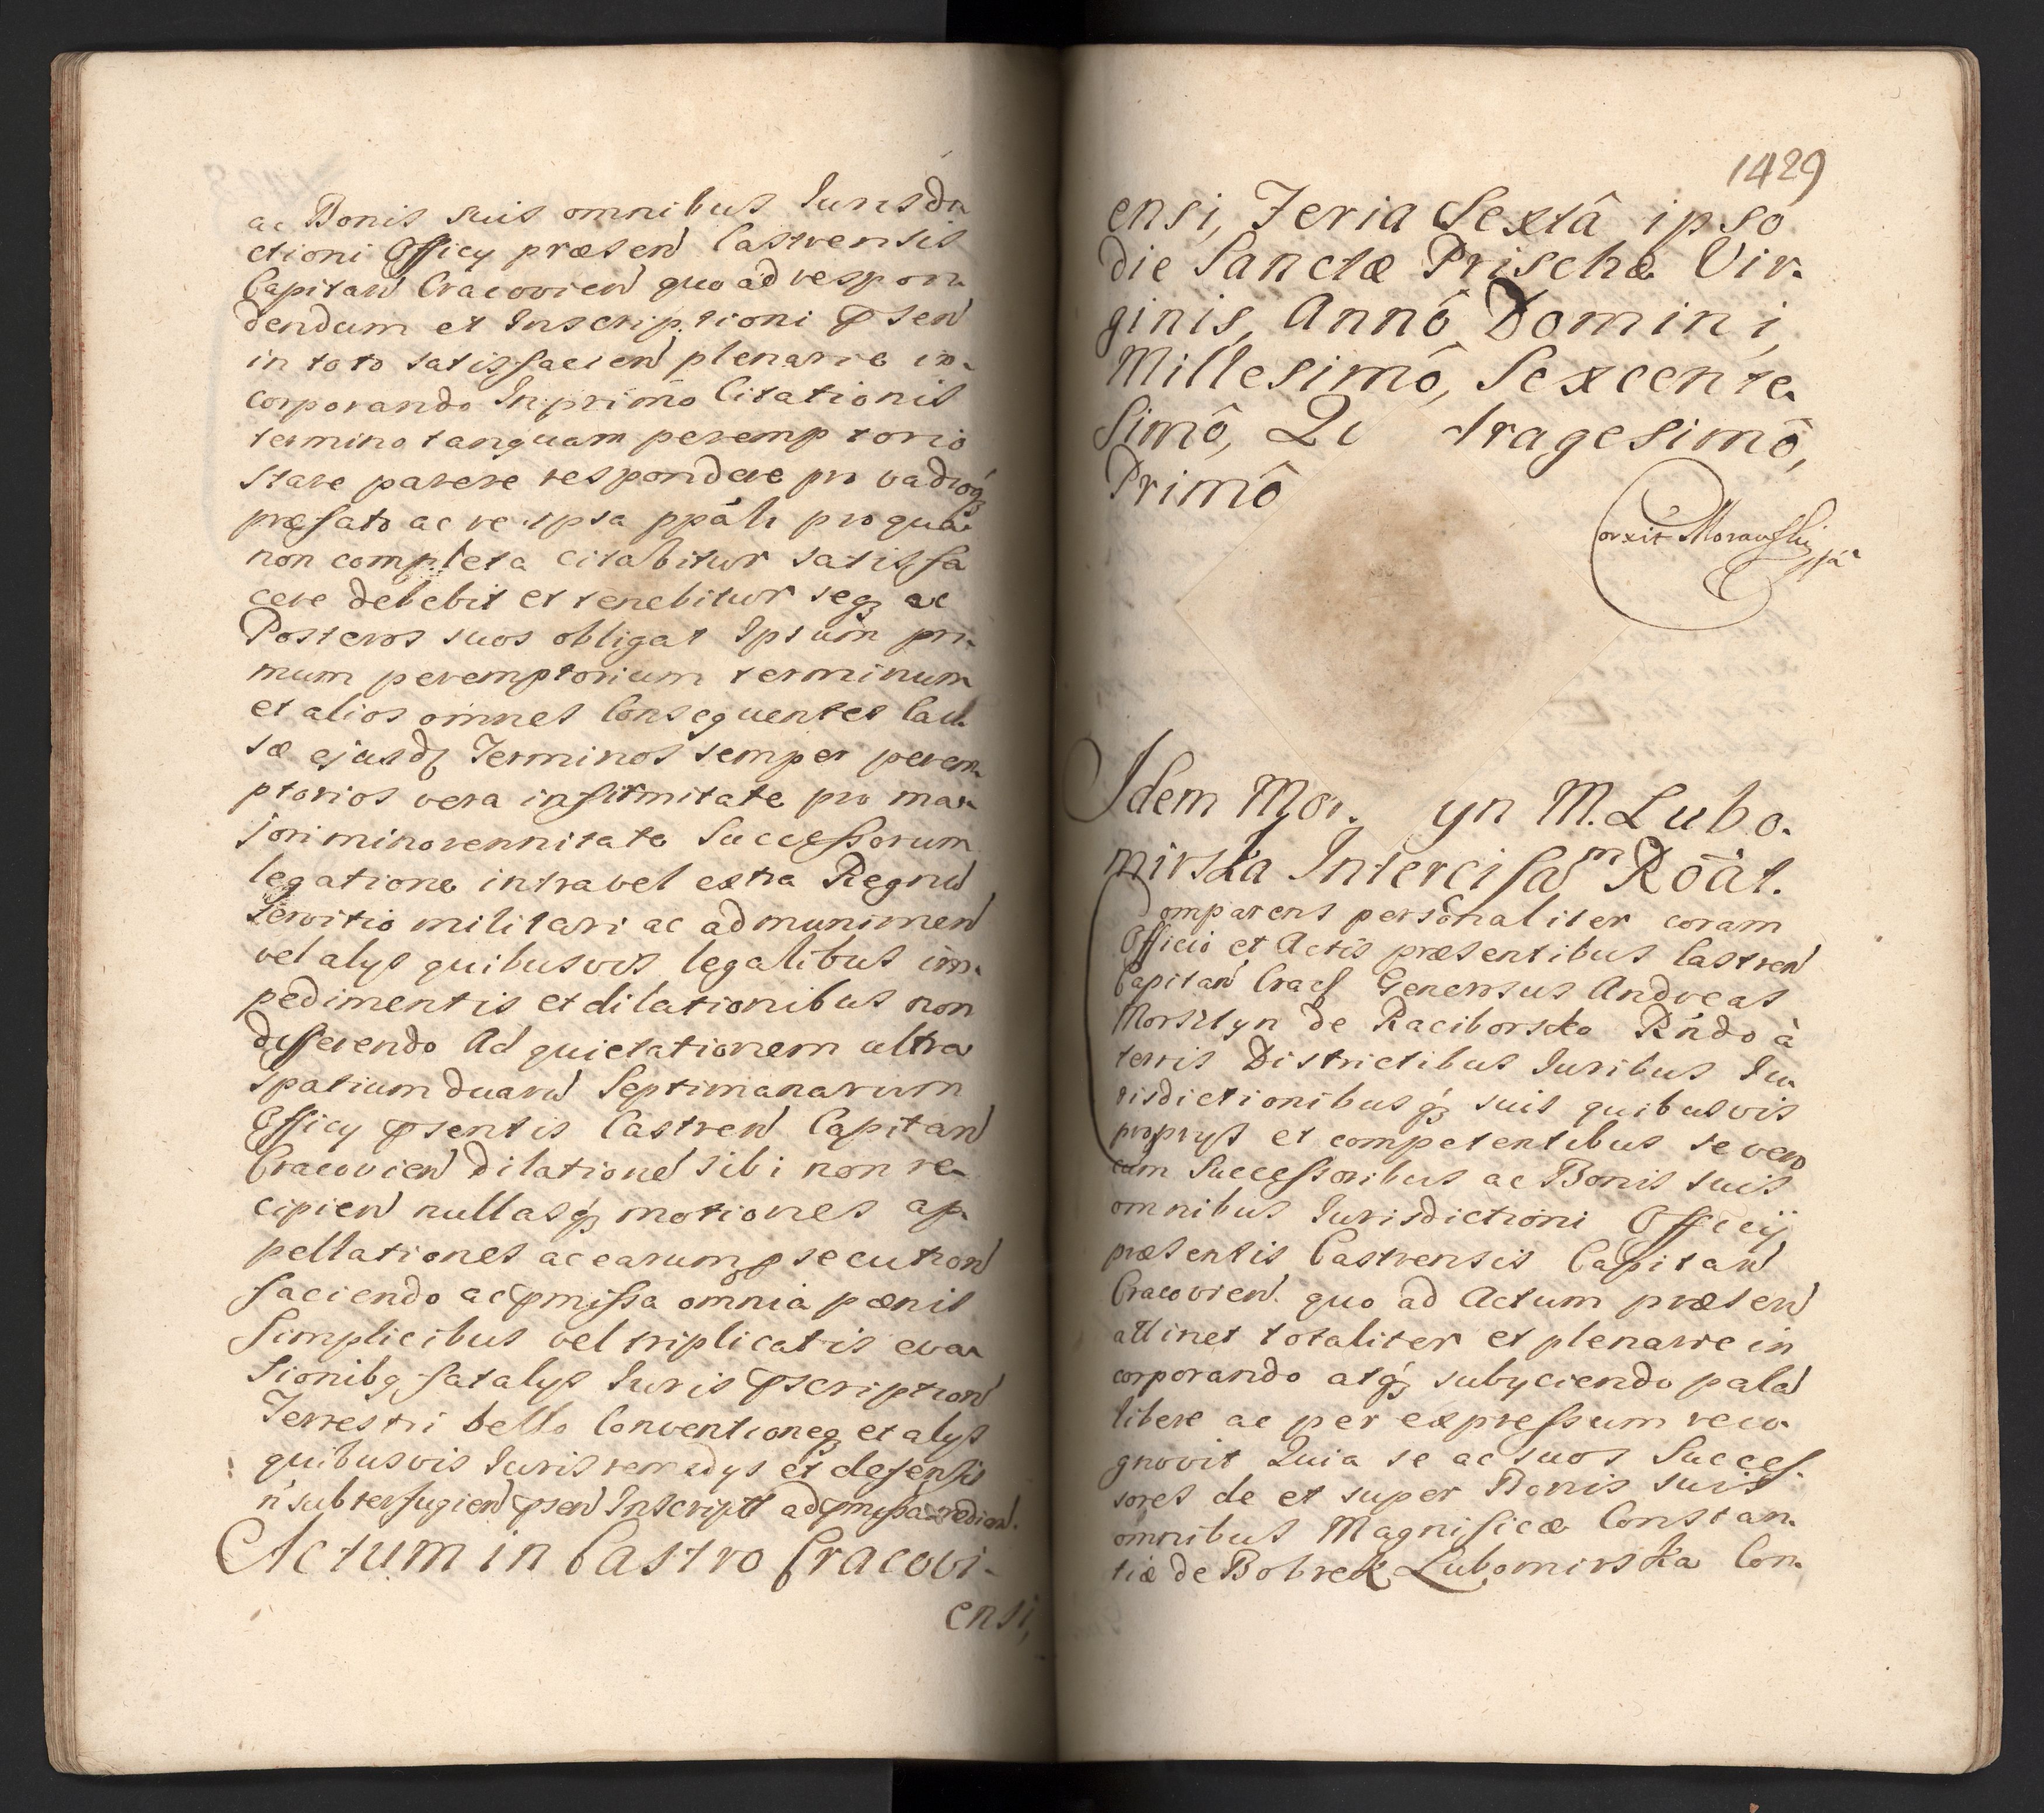 ac Bonis suis omnibus Jurisdi-
ctioni Officy præsen Castrensis
Capitan Cracovien quo ad respon-
dendum et Inscriptioni psen
in toto satisfacien plenarie in-
corporando In primo Citationis
termino tanquam peremptorio
stare parere respondere pro vadioq
præfato ac re ipsa ppali pro qua
non completa citabitur satisfa
cere debebit et tenebitur seq ac
Posteros suos obligat Ipsum pri-
mum peremptorium terminum
et alios omnes Consequentes Cau-
sæ ejusd Terminos semper perem-
ptorios vera infirmitate pro ma-
jori minorennitate Successorum
legatione intra vel extra Regnu
Servitio militari ac ad munimen
vel alys quibusvis legalibus im-
pedimentis et dilationibus non
differendo Ad quietationem ultra
spatium duaru Septimanarum
Officy psentis Castren Capitan
Cracovien dilatione sibi non re-
cipien nullasq motiones ap-
pellationes ac earum psecution
faciendo ac pmissa omnia pænis
simplicibus vel triplicatis eva-
sionibq fatalys Juris pscription
Terrestri bello Conventioneq et alys
quibusvis Juris remedys et defensis
n subterfugien psen Inscript ad pmissa redien.
Actum in Castro Cracovi-
ensi,
1429
ensi, Feria Sextâ ipso
die Sanctæ Prischæ Vir-
ginis, Annô Domini,
Millesimô, Sexcente-
simô, Qu tragesimô,
Primô
Corxit Morawski
Idem Mor. yn M. Lubo-
mirska Intercisam Rôat.
Comparens personaliter coram
Officio et Actis præsentibus Castren
Capitan Crac Generosus Andreas
Morsztyn de Raciborsko Rndo à
terris Districtibus Juribus Ju-
risdictionibusq suis quibusvis
proprys et competentibus se vero
cum Successoribus ac Bonis suis
omnibus Jurisdictioni Officij
præsentis Castrensis Capitan
Cracovien quo ad Actum præsen
attinet totaliter et plenarie in
corporando atq subyciendo pala
libere ac per expressum reco-
gnovit Quia se ac suos Succes
sores de et super Bonis suis
omnibus Magnificæ Constan-
tiæ de Bobrek Lubomirska Con-